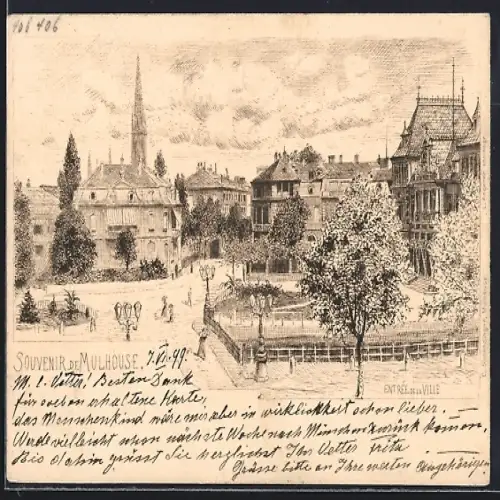 406
SOUVENIR DE MULHOUSE, 7. VI. 99.
ENTRÉE DE LA VILLE
M. l. Vetter! Besten Dank
für soeben erhaltene Karte,
das Menschenkind wäre mir aber in wirklichkeit schon lieber. —
Werde vielleicht schon nächste Woche nach München zurück kommen,
Bis dahin grüsst Sie herzlichst Ihr Vetter Fritz
Grüsse bitte an Ihre werten Angehörigen